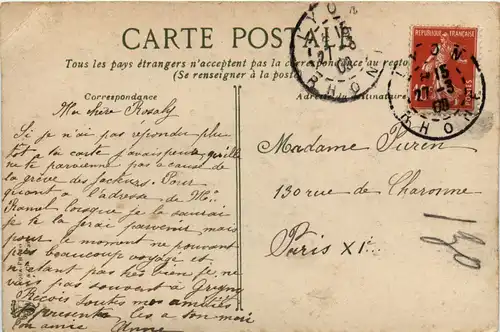 CARTE POSTALE
Tous les pays étrangers n'acceptent pas la correspondance au recto
(Se renseigner à la poste)
Correspondance
Ma chère Rosaly
Si je n'ai pas repondu plus
tot a ta carte j'avais peur qu'elle
ne te parvienne pas a cause de
la grève des facteurs. Pour
quant a l'adresse de Mr
lorsque je la saurai
je te la ferai parvenir mais
pour le moment ne pouvant
pas beaucoup voyagé et
n'etant pas très bien je ne
vais pas souvent à Grigny
Reçois toutes mes amitiés
Presente les a ton mari
ton amie Anne
Madame Puren
130 rue de Charonne
Paris XI e
RÉPUBLIQUE FRANÇAISE
POSTES
LYON
RHONE
LYON
RHONE